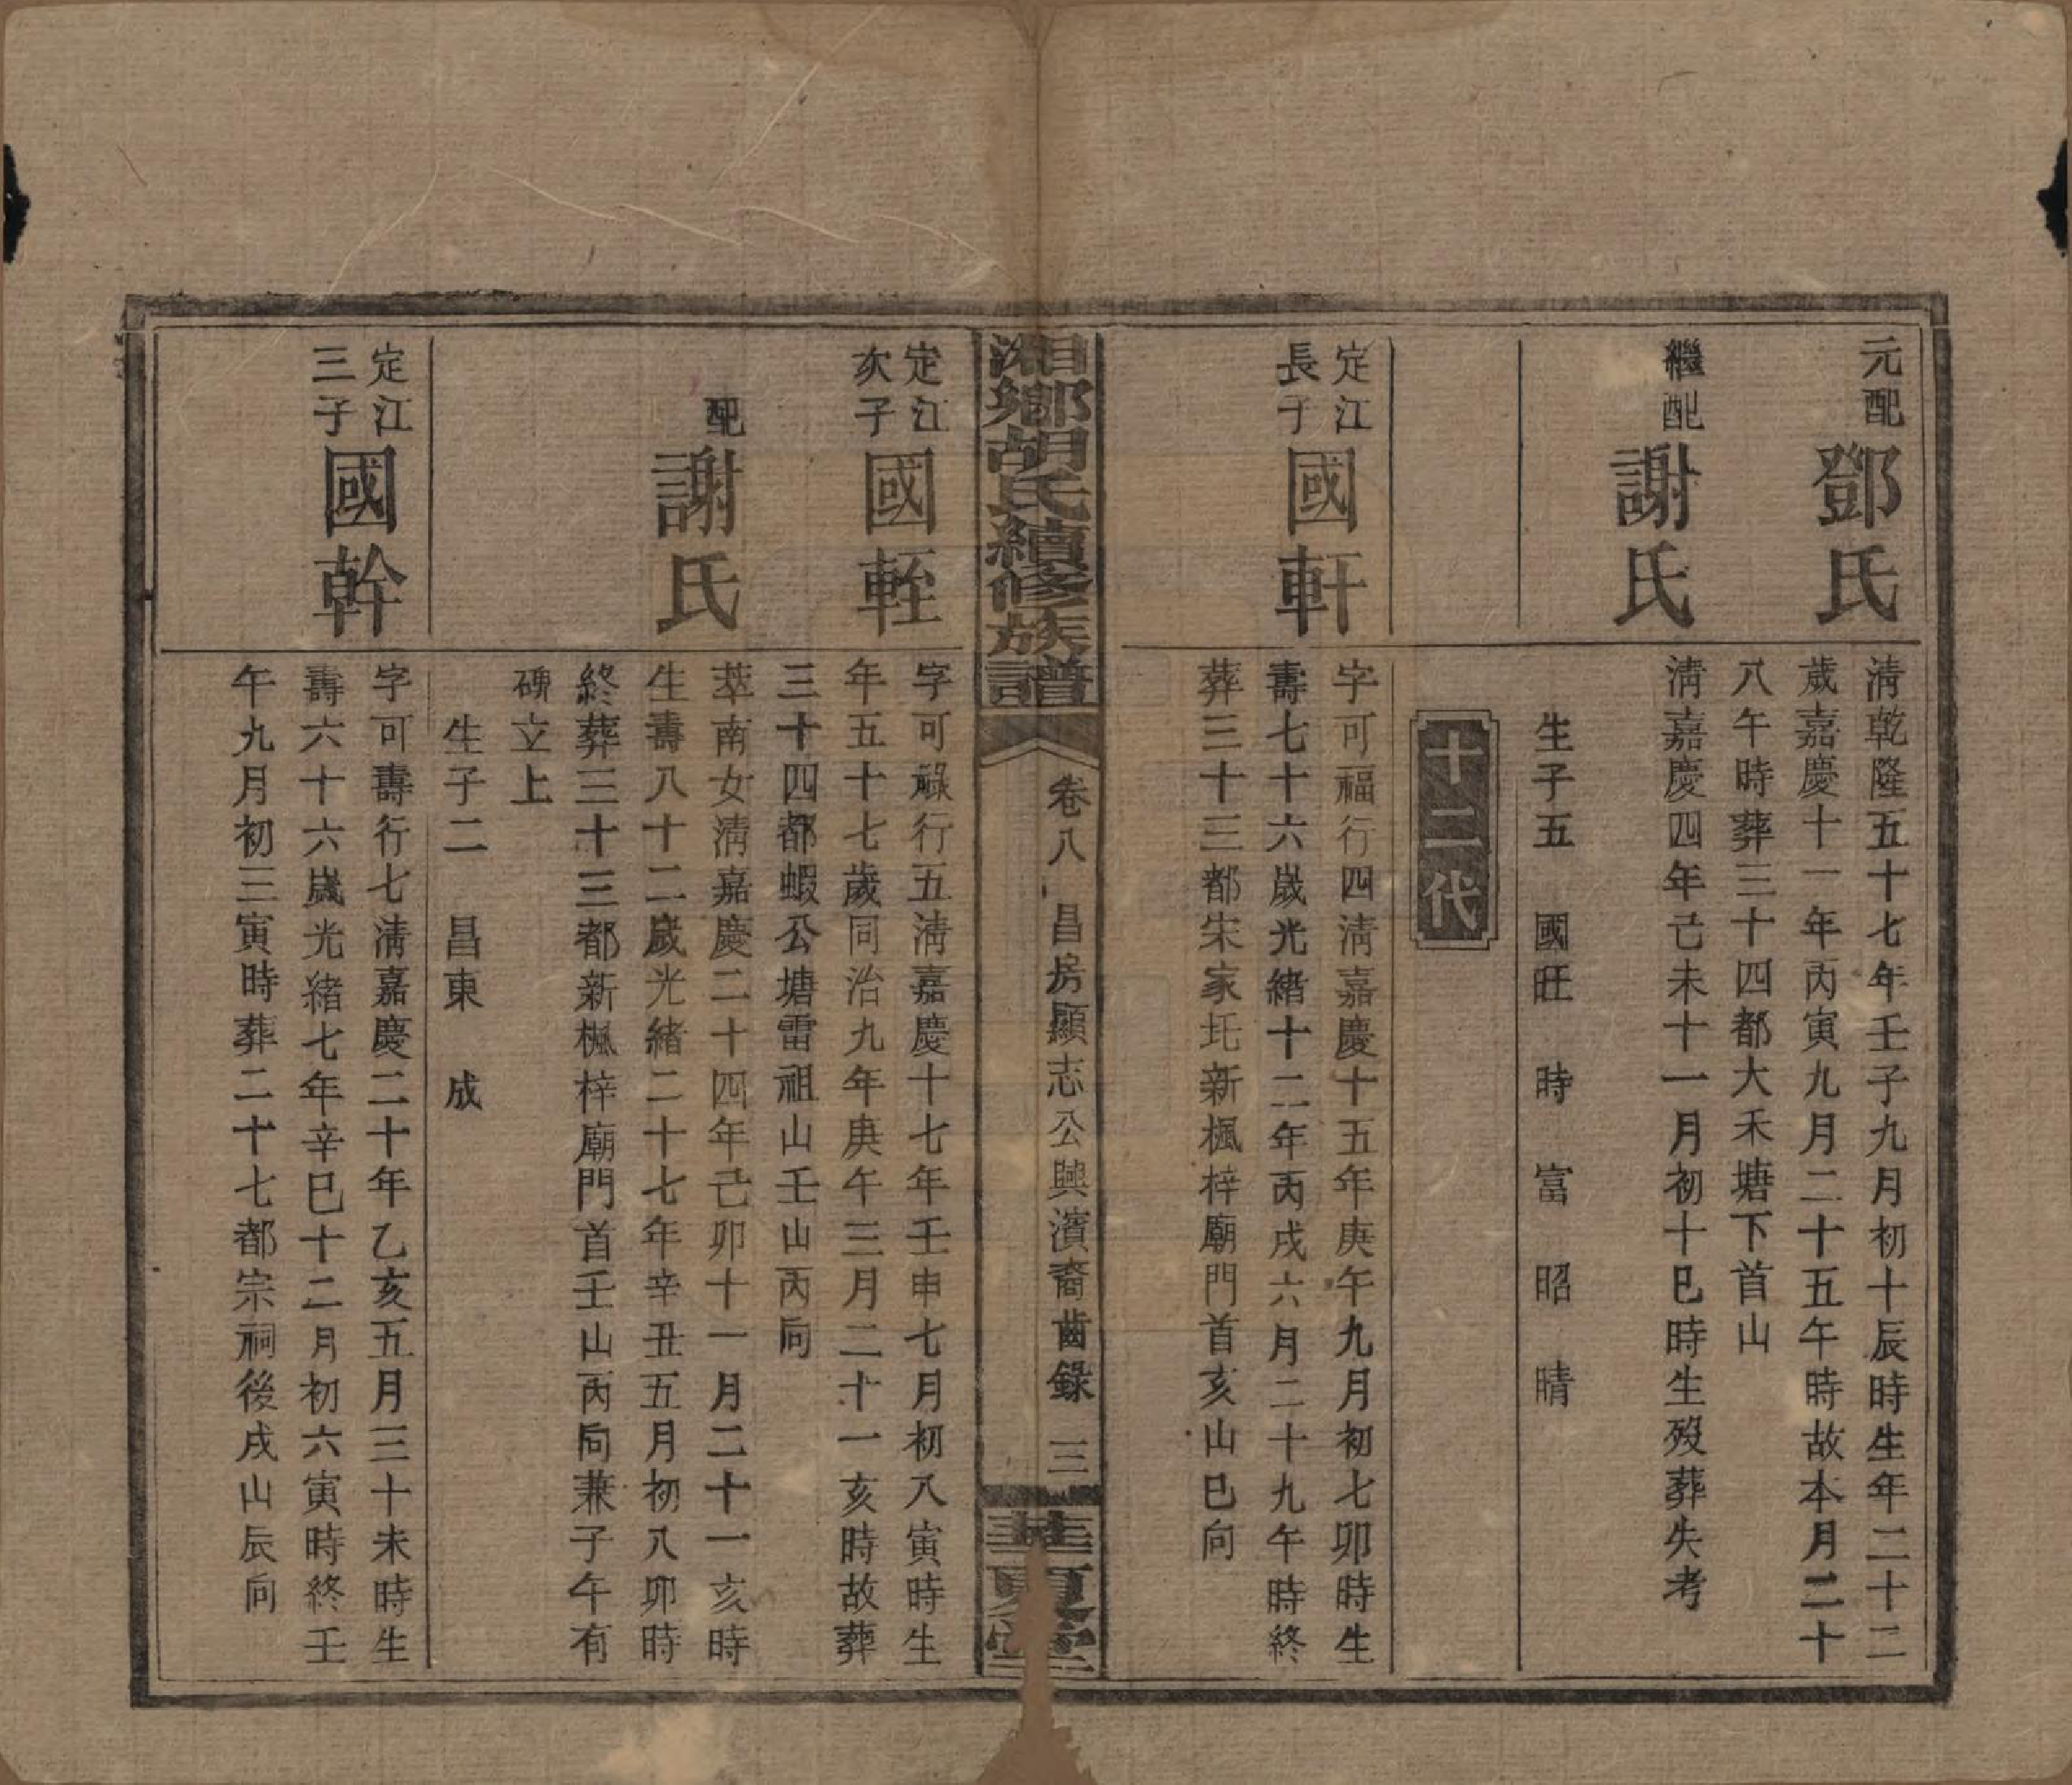 元配
鄧氏
清乾隆五十七年壬子九月初十辰時生年二十二
歲嘉慶十一年丙寅九月二十五午時故本月二十
八午時葬三十四都大禾塘下首山
繼配
謝氏
清嘉慶四年己未十一月初十巳時生歿葬失考
生子五　國旺　時　富　昭　晴
十二代
定江
長子
國軒
字可福行四清嘉慶十五年庚午九月初七卯時生
壽七十六歲光緒十二年丙戌六月二十九午時終
葬三十三都宋家圫新楓梓廟門首亥山巳向
湘鄉胡氏續修族譜
卷八　昌房顯志公興濱裔齒錄　三
華夏堂
定江
次子
國輊
字可祿行五清嘉慶十七年壬申七月初八寅時生
年五十七歲同治九年庚午三月二十一亥時故葬
三十四都蝦公塘雷祖山壬山丙向
配
謝氏
萃南女清嘉慶二十四年己卯十一月二十一亥時
生壽八十二歲光緒二十七年辛丑五月初八卯時
終葬三十三都新楓梓廟門首壬山丙向兼子午有
碑立上
生子二　昌東　成
定江
三子
國幹
字可壽行七清嘉慶二十年乙亥五月三十未時生
壽六十六歲光緒七年辛巳十二月初六寅時終壬
午九月初三寅時葬二十七都宗祠後戌山辰向